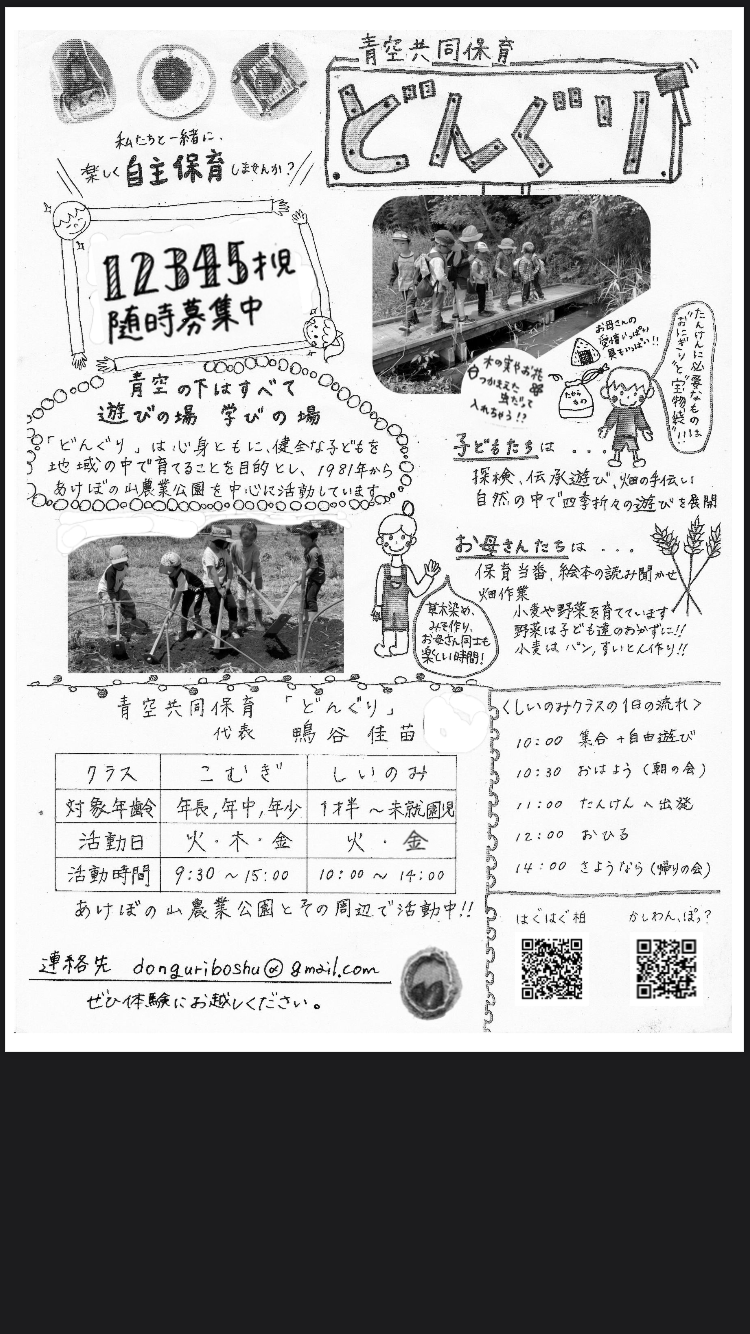 青空共同保育
どんぐり
私たちと一緒に、
楽しく自主保育しませんか?
12345才児
随時募集中
お母さんの
愛情いっぱい
具もいっぱい!!
たんけんに必要なものは
"おにぎり"と"宝物袋"!!
木の実やお花
つかまえた
虫だって
入れちゃう!?
たから
もの
青空の下はすべて
遊びの場 学びの場
「どんぐり」は心身ともに、健全な子どもを
地域の中で育てることを目的とし、1981年から
あけぼの山農業公園を中心に活動しています
子どもたちは ...
探検、伝承遊び、畑の手伝い
自然の中で四季折々の遊びを展開
お母さんたちは ...
保育当番、絵本の読み聞かせ
畑作業
小麦や野菜を育てています
野菜は子ども達のおかずに!!
小麦はパン,すいとん作り!!
草木染め、
みそ作り、
お母さん同士も
楽しい時間!
青空共同保育 「どんぐり」
代表 鴨谷佳苗
クラス こむぎ しいのみ
対象年齢 年長,年中,年少 1才半〜未就園児
活動日 火・木・金 火・金
活動時間 9:30〜15:00 10:00〜14:00
あけぼの山農業公園とその周辺で活動中!!
連絡先 donguriboshu@gmail.com
ぜひ体験にお越しください。
<しいのみクラスの1日の流れ>
10:00 集合+自由遊び
10:30 おはよう(朝の会)
11:00 たんけんへ出発
12:00 おひる
14:00 さようなら(帰りの会)
はぐはぐ柏 かしわん、ぽっ?